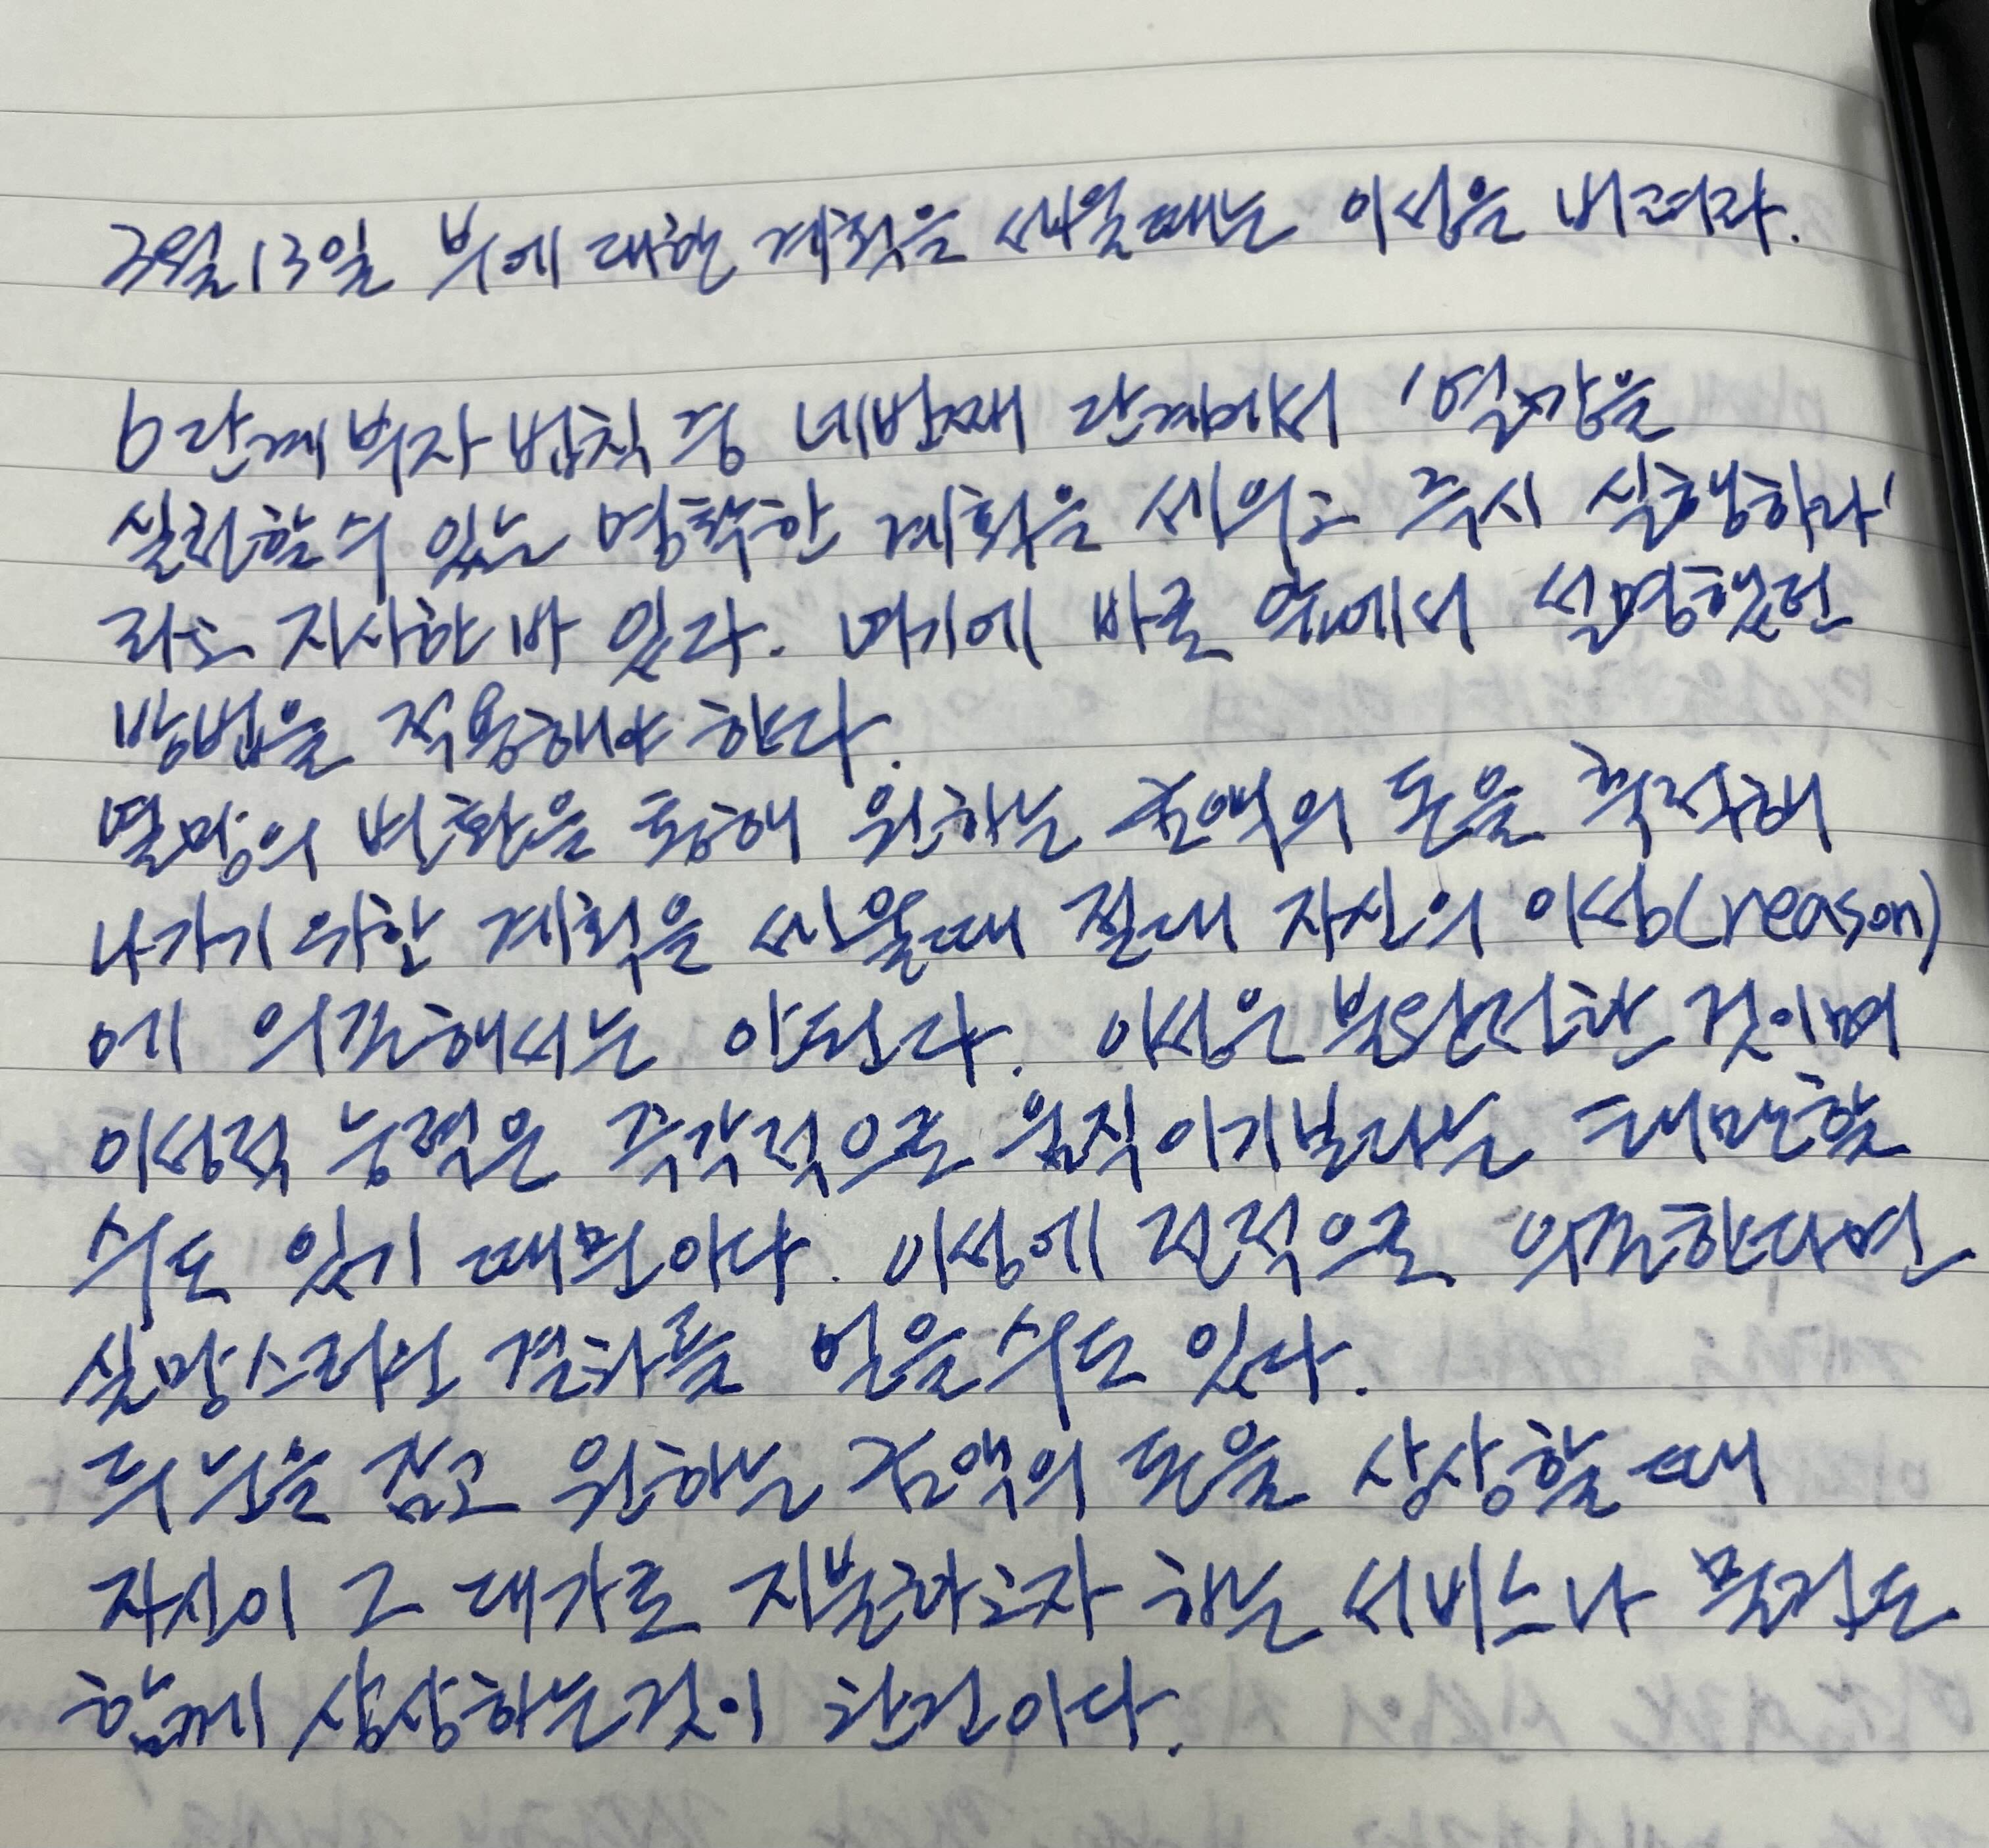 3월 13일 부에 대한 계획을 세울때는 이성을 버려라.
6단계 부자 법칙 중 네번째 단계에서 '열망을
실현할수 있는 명확한 계획을 세우고 즉시 실행하라'
라고 지시한 바 있다. 여기에 바로 앞에서 설명했던
방법을 적용해야 한다.
열망의 변환을 통해 원하는 금액의 돈을 축적해
나가기 위한 계획을 세울때 절대 자신의 이성(reason)
에 의존해서는 안된다. 이성은 불완전한 것이며
이성적 능력은 즉각적으로 움직이기보다는 태만할
수도 있기 때문이다. 이성에 전적으로 의존한다면
실망스러운 결과를 얻을수도 있다.
두 눈을 감고 원하는 금액의 돈을 상상할 때
자신이 그 대가로 지불하고자 하는 서비스나 물건도
함께 상상하는것이 관건이다.